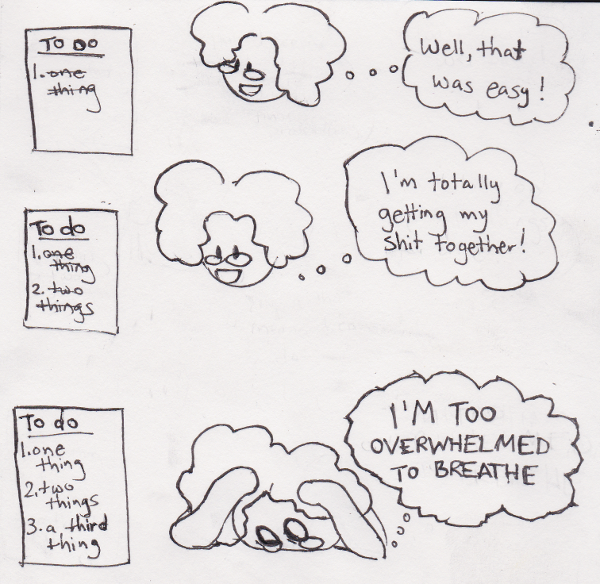 To Do
1. one
thing
Well, that
was easy!
To do
1. one
thing
2. two
things
I'm totally
getting my
shit together!
To do
1. one
thing
2. two
things
3. a third
thing
I'M TOO
OVERWHELMED
TO BREATHE